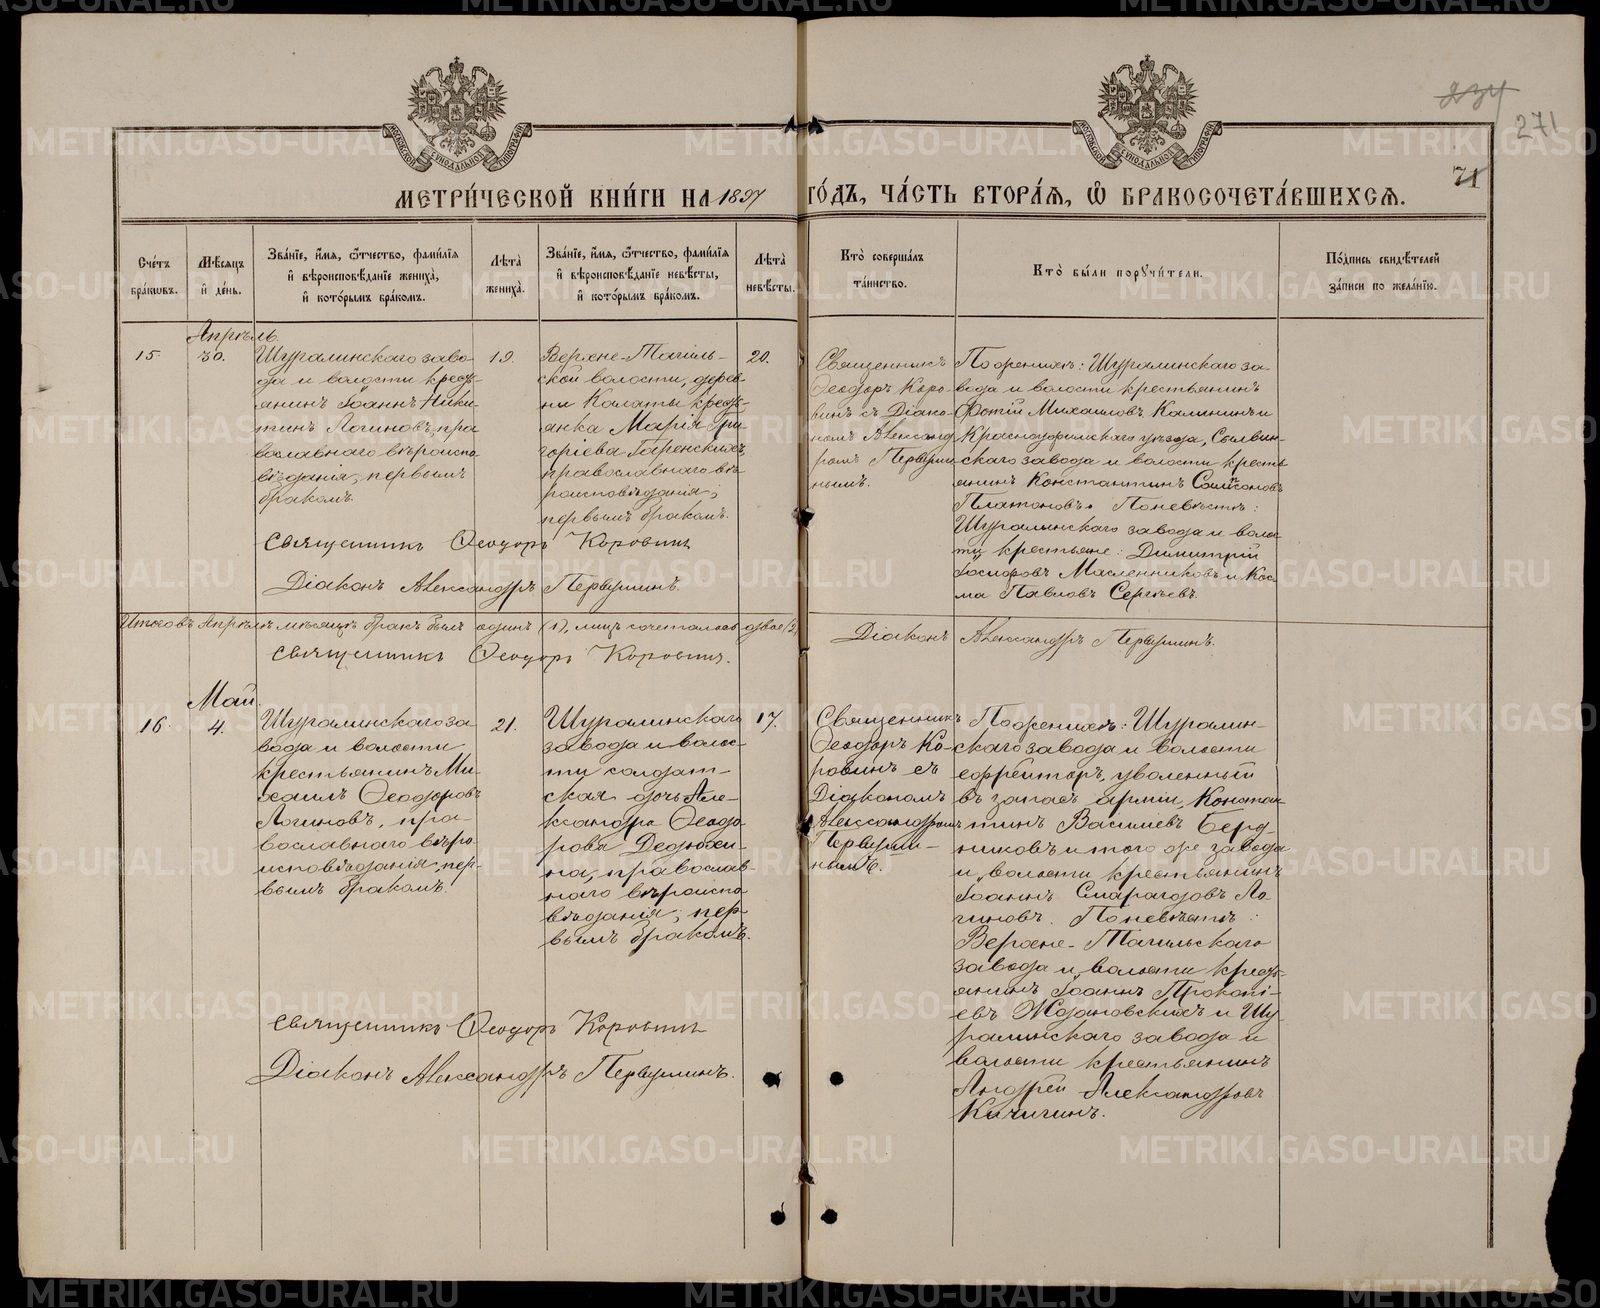 234
271
71
МЕТРИ́ЧЕСКОЙ КНИ́ГИ НА 1897 ГО́ДЪ, ЧА́СТЬ ВТОРА́Я, Ѡ БРАКОСОЧЕТА́ВШИХСЯ.
Сче́тъ бра́кѡвъ.
Мѣ́сяцъ и́ де́нь.
Зва́нїе, и́мя, ѻ́тчество, фами́лїя и́ вѣроисповѣ́данїе жениха̀, и́ кото́рымъ бра́комъ.
Лѣ́та жениха̀.
Зва́нїе, и́мя, ѻ́тчество, фами́лїя и́ вѣроисповѣ́данїе невѣ́сты, и́ кото́рымъ бра́комъ.
Лѣ́та невѣ́сты.
Кто̀ соверша́лъ та́инство.
Кто̀ бы́ли порꙋчи́тели.
По́дпись свидѣ́телей за́писи по жела́нїю.
Апрѣль.
15.
30.
Шуралинскаго заво-
да и волости кресть-
янинъ Іоаннъ Ники-
тинъ Логиновъ, пра
вославнаго вѣроиспо
вѣданія, первымъ
бракомъ.
19.
Верхне-Тагиль-
ской волости, дерев
ни Калаты кресть-
янка Марія Гри
горіева Гаренскихъ
православнаго вѣ
роисповѣданія;
первымъ бракомъ.
20.
Священникъ
Ѳеодоръ Коро-
винъ съ Діако-
номъ Александ
ромъ Первуши
нымъ.
По женихѣ: Шуралинскаго за-
вода и волости крестьянинъ
Фотій Михаиловъ Калининъ и
Красноуфимскаго уѣзда, Сылвин-
скаго завода и волости кресть
янинъ Константинъ Самсоновъ
Платоновъ. По невѣстѣ:
Шуралинскаго завода и волос
ти крестьяне: Димитрій
Іосифовъ Масленниковъ и Кос
ма Павловъ Сергѣевъ.
Священникъ Ѳеодоръ Коровинъ
Діаконъ Александръ Первушинъ.
Итого въ Апрѣлѣ мѣсяцѣ бракъ былъ одинъ (1), лицъ сочеталось двое (2)
Священникъ Ѳеодоръ Коровинъ.
Діаконъ Александръ Первушинъ.
Май.
16.
4.
Шуралинскаго за
вода и волости
крестьянинъ Ми-
хаилъ Ѳеодоровъ
Логиновъ, пра-
вославнаго вѣро
исповѣданія, пер-
вымъ бракомъ.
21.
Шуралинскаго
завода и волос-
ти солдат-
ская дочь Але-
ксандра Ѳеодо
рова Дедюхи-
на, православ-
наго вѣроиспо
вѣданія; пер
вымъ бракомъ.
17.
Священникъ
Ѳеодоръ Ко-
ровинъ съ
Діакономъ
Александромъ
Первуши-
нымъ.
По женихѣ: Шуралин-
скаго завода и волости
ефрейторъ, уволенный
въ запасъ арміи, Констан
тинъ Василіевъ Берд-
никовъ и того же завода
и волости крестьянинъ
Іоаннъ Смарагдовъ Ло
гиновъ. По невѣстѣ:
Верхне-Тагильскаго
завода и волости кресть-
янинъ Іоаннъ Прокопі-
евъ Ждановскихъ и Шу-
ралинскаго завода и
волости крестьянинъ
Андрей Александровъ
Кичигинъ.
Священникъ Ѳеодоръ Коровинъ
Діаконъ Александръ Первушинъ.
METRIKI.GASO-URAL.RU